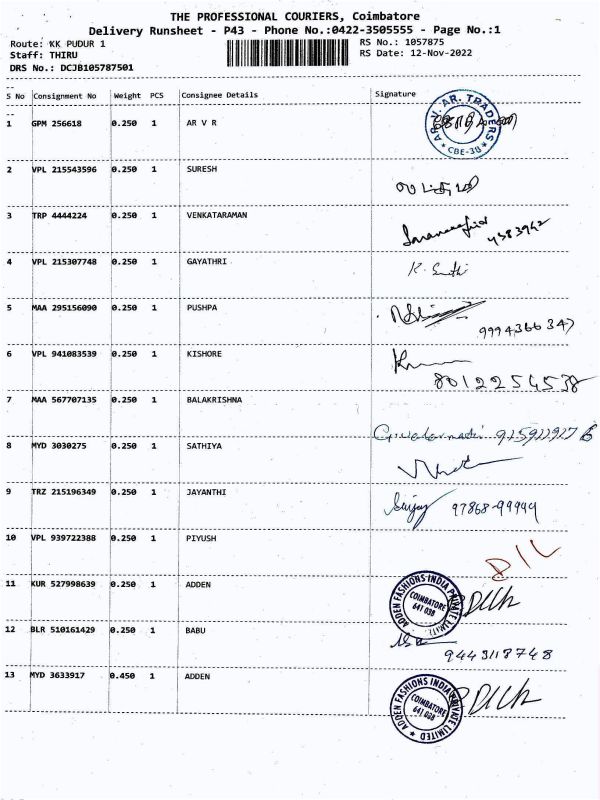 THE PROFESSIONAL COURIERS, Coimbatore
Delivery Runsheet - P43 - Phone No.:0422-3505555 - Page No.:1
Route: KK PUDUR 1 RS No.: 1057875
Staff: THIRU RS Date: 12-Nov-2022
DRS No.: DCJB105787501
S No Consignment No Weight PCS Consignee Details Signature
1 GPM 256618 0.250 1 AR V R
AR. V. AR. TRADERS
* CBE-38 *
2 VPL 215543596 0.250 1 SURESH
3 TRP 4444224 0.250 1 VENKATARAMAN
4 VPL 215307748 0.250 1 GAYATHRI
5 MAA 295156090 0.250 1 PUSHPA
9994366347
6 VPL 941083539 0.250 1 KISHORE
8012254538
7 MAA 567707135 0.250 1 BALAKRISHNA
8 MYD 3030275 0.250 1 SATHIYA
9 TRZ 215196349 0.250 1 JAYANTHI
97868-99999
10 VPL 939722388 0.250 1 PIYUSH
D/L
11 KUR 527998639 0.250 1 ADDEN
ADDEN FASHIONS INDIA PRIVATE LIMITED
COIMBATORE
641 038
12 BLR 510161429 0.250 1 BABU
9443118748
13 MYD 3633917 0.450 1 ADDEN
ADDEN FASHIONS INDIA PRIVATE LIMITED
COIMBATORE
641 038